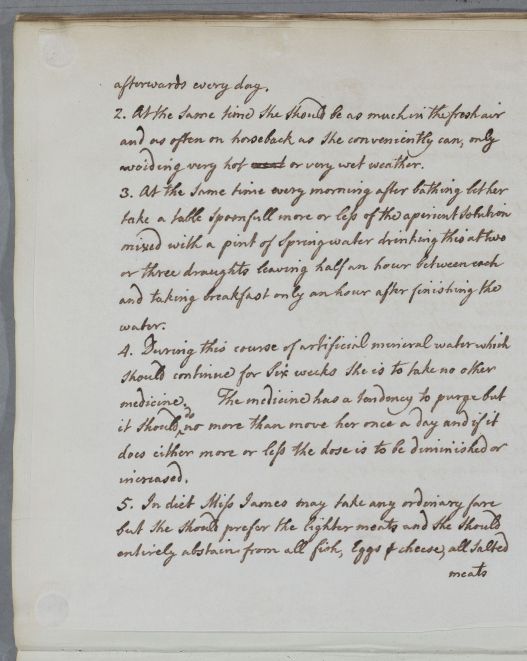 afterwards every day.
2. At the same time she should be as much in the fresh air
and as often on horseback as she conveniently can, only
avoiding very hot or very wet weather.
3. At the same time every morning after bathing let her
take a table spoonfull more or less of the aperient solution
mixed with a pint of Spring water drinking this at two
or three draughts leaving half an hour between each
and taking breakfast only an hour after finishing the
water.
4. During this course of artificial mineral water which
should continue for Six weeks she is to take no other
medicine. The medicine has a tendency to purge but
it should do no more than move her once a day and if it
does either more or less the dose is to be diminished or
increased.
5. In diet Miss James may take any ordinary fare
but she should prefer the lighter meats and she should
entirely abstain from all fish, Eggs & cheese, all salted
meats